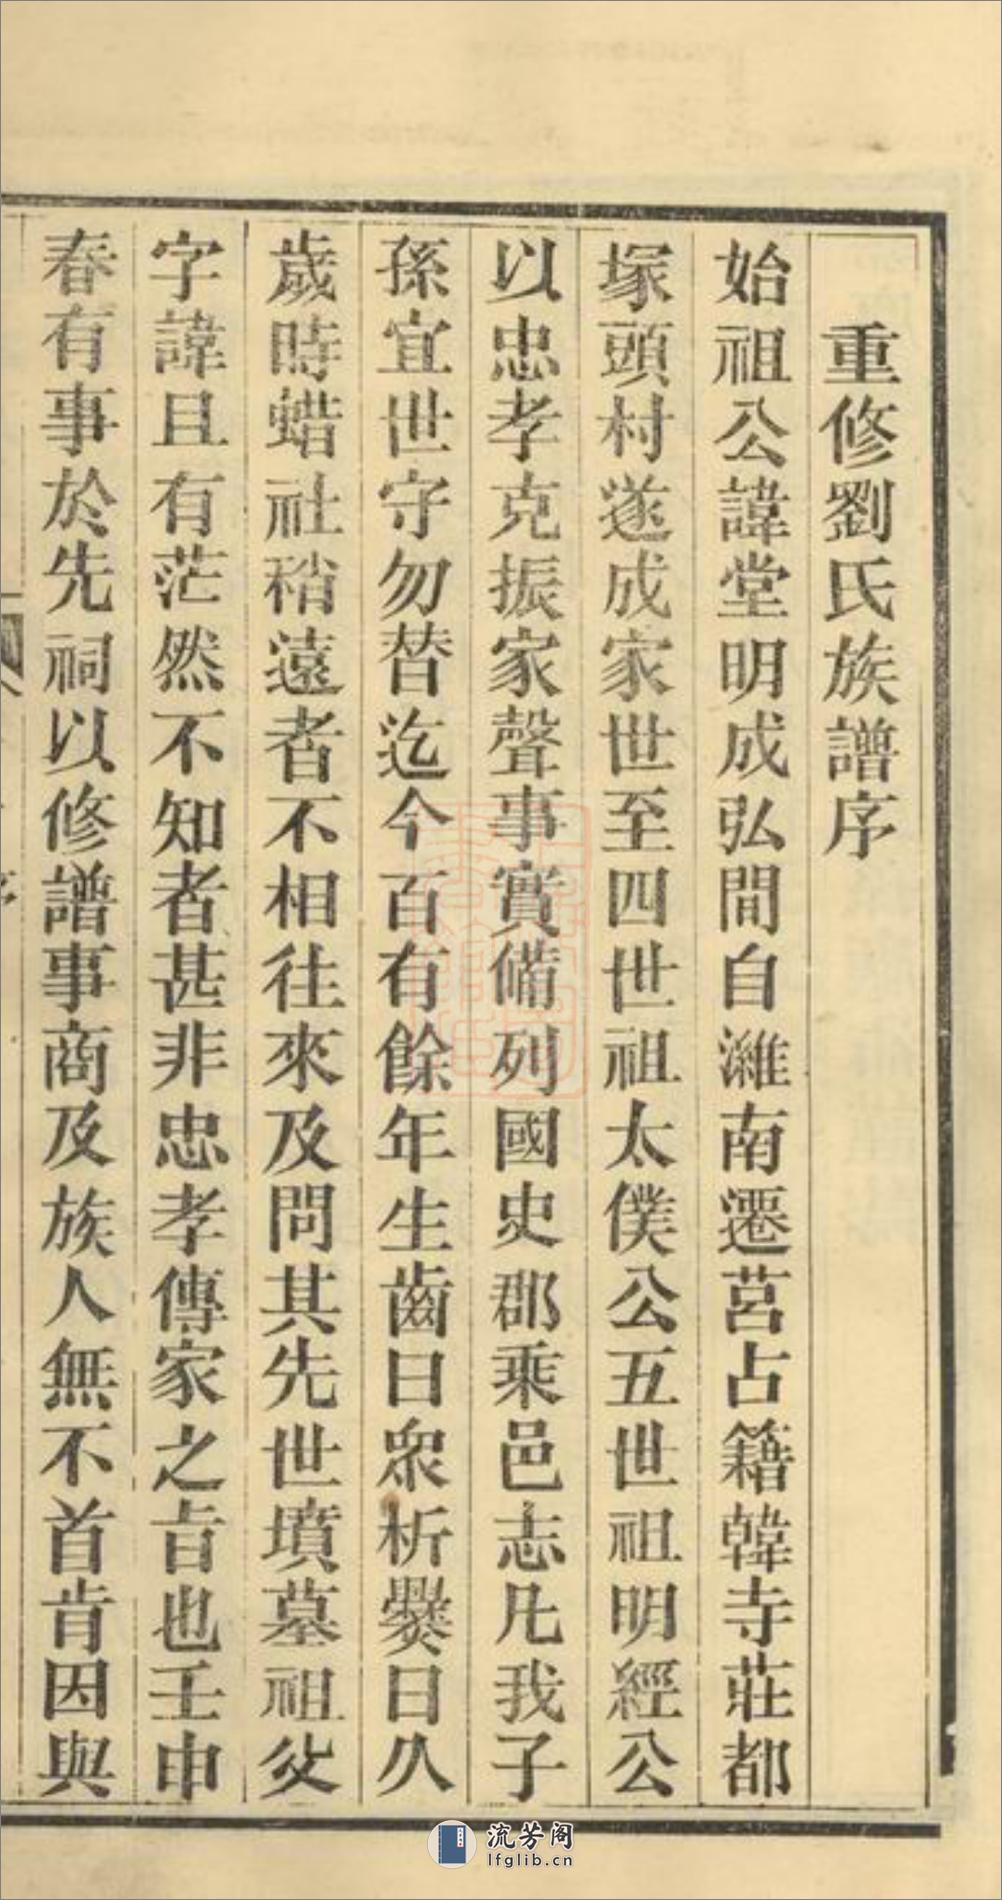 重修劉氏族譜序
始祖公諱堂明成弘間自濰南遷莒占籍韓寺莊都
塚頭村遂成家世至四世祖太僕公五世祖明經公
以忠孝克振家聲事實備列國史郡乘邑志凡我子
孫宜世守勿替迄今百有餘年生齒日眾析爨日久
歲時蜡社稍遠者不相往來及問其先世墳墓祖父
字諱且有茫然不知者甚非忠孝傳家之旨也壬申
春有事於先祠以修譜事商及族人無不首肯因與
流芳阁
lfglib.cn